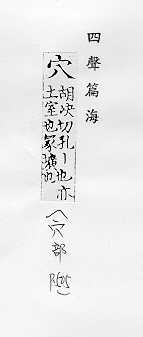 四聲篇海
穴
胡决切孔丨也亦
土室也冢壙也
(穴部